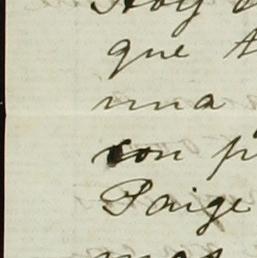 Hoy
que
una
con p
Paige